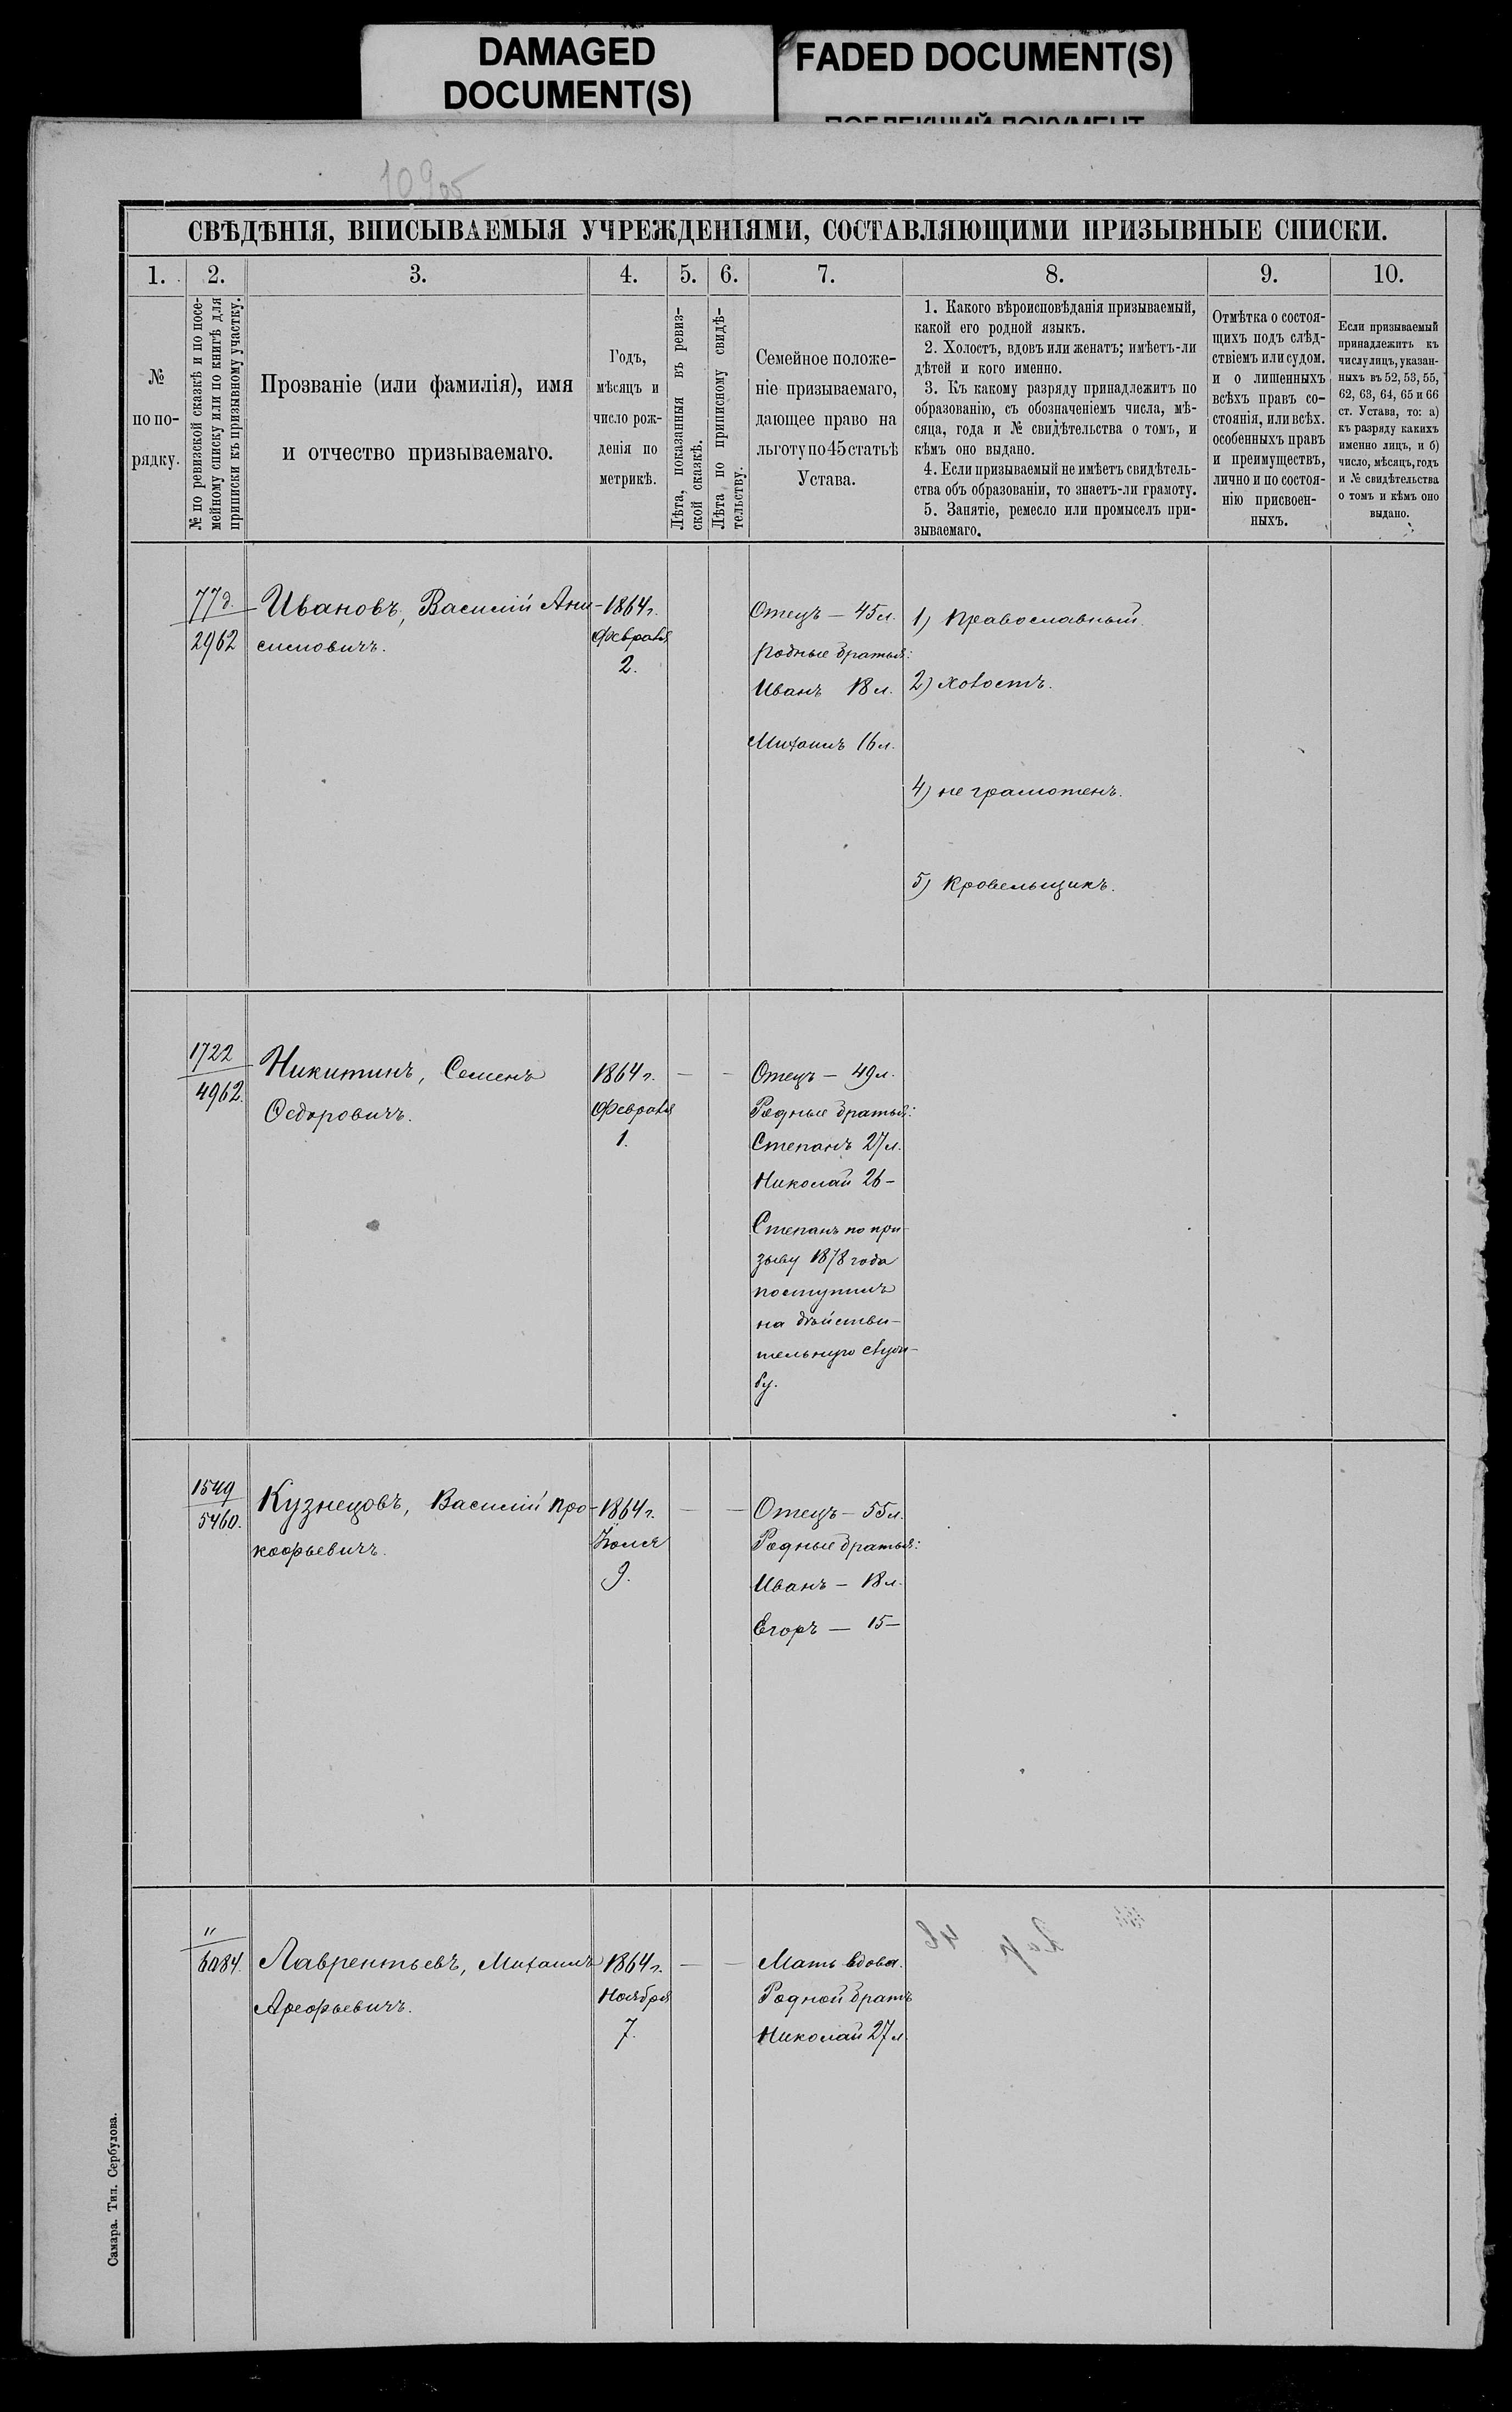 DAMAGED
DOCUMENT(S)
FADED DOCUMENT(S)
ПОБЛЕКШИЙ ДОКУМЕНТ
СВѢДѢНІЯ, ВПИСЫВАЕМЫЯ УЧРЕЖДЕНІЯМИ, СОСТАВЛЯЮЩИМИ ПРИЗЫВНЫЕ СПИСКИ.
1. 2. 3. 4. 5. 6. 7. 8. 9. 10.
№
по по-
рядку.
№ по ревизской сказкѣ и по посе-
мейному списку или по книгѣ для
приписки къ призывному участку.
Прозваніе (или фамилія), имя
и отчество призываемаго.
Годъ,
мѣсяцъ и
число рож-
денія по
метрикѣ.
Лѣта, показанныя въ ревиз-
ской сказкѣ.
Лѣта по приписному свидѣ-
тельству.
Семейное положе-
ніе призываемаго,
дающее право на
льготу по 45 статьѣ
Устава.
1. Какого вѣроисповѣданія призываемый,
какой его родной языкъ.
2. Холостъ, вдовъ или женатъ; имѣетъ-ли
дѣтей и кого именно.
3. Къ какому разряду принадлежитъ по
образованію, съ обозначеніемъ числа, мѣ-
сяца, года и № свидѣтельства о томъ, и
кѣмъ оно выдано.
4. Если призываемый не имѣетъ свидѣтель-
ства объ образованіи, то знаетъ-ли грамоту.
5. Занятіе, ремесло или промыселъ при-
зываемаго.
Отмѣтка о состоя-
щихъ подъ слѣд-
ствіемъ или судом.
и о лишенныхъ
всѣхъ правъ со-
стоянія, или всѣх.
особенныхъ правъ
и преимуществъ,
лично и по состоя-
нію присвоен-
ныхъ.
Если призываемый
принадлежитъ къ
числу лицъ, указан-
ныхъ въ 52, 53, 55,
62, 63, 64, 65 и 66
ст. Устава, то: а)
къ разряду какихъ
именно лицъ, и б)
число, мѣсяцъ, годъ
и № свидѣтельства
о томъ и кѣмъ оно
выдано.
77д.
2962
Ивановъ, Василій Ани-
симовичъ.
1864 г.
Февраля
2.
Отецъ — 45 л.
Родные братья:
Иванъ 18 л.
Михаилъ 16 л.
1) Православный.
2) холостъ.
4) не грамотенъ.
5) Кровельщикъ.
1722
4962.
Никитинъ, Семенъ
Ѳедоровичъ.
1864 г.
Февраля
1.
— —
Отецъ — 49 л.
Родные братья:
Степанъ 27 л.
Николай 26 —
Степанъ по при-
зыву 1878 года
поступилъ
на дѣйстви-
тельную служ-
бу.
1549
5460.
Кузнецовъ, Василій Про-
кофьевичъ.
1864 г.
Іюля
9.
— —
Отецъ — 55 л.
Родные братья:
Иванъ — 18 л.
Егоръ — 15 —
"
6084.
Лаврентьевъ, Михаилъ
Арефьевичъ.
1864 г.
Ноября
7.
— —
Мать вдова.
Родной братъ
Николай 27 л.
Самара. Тип. Сербулова.